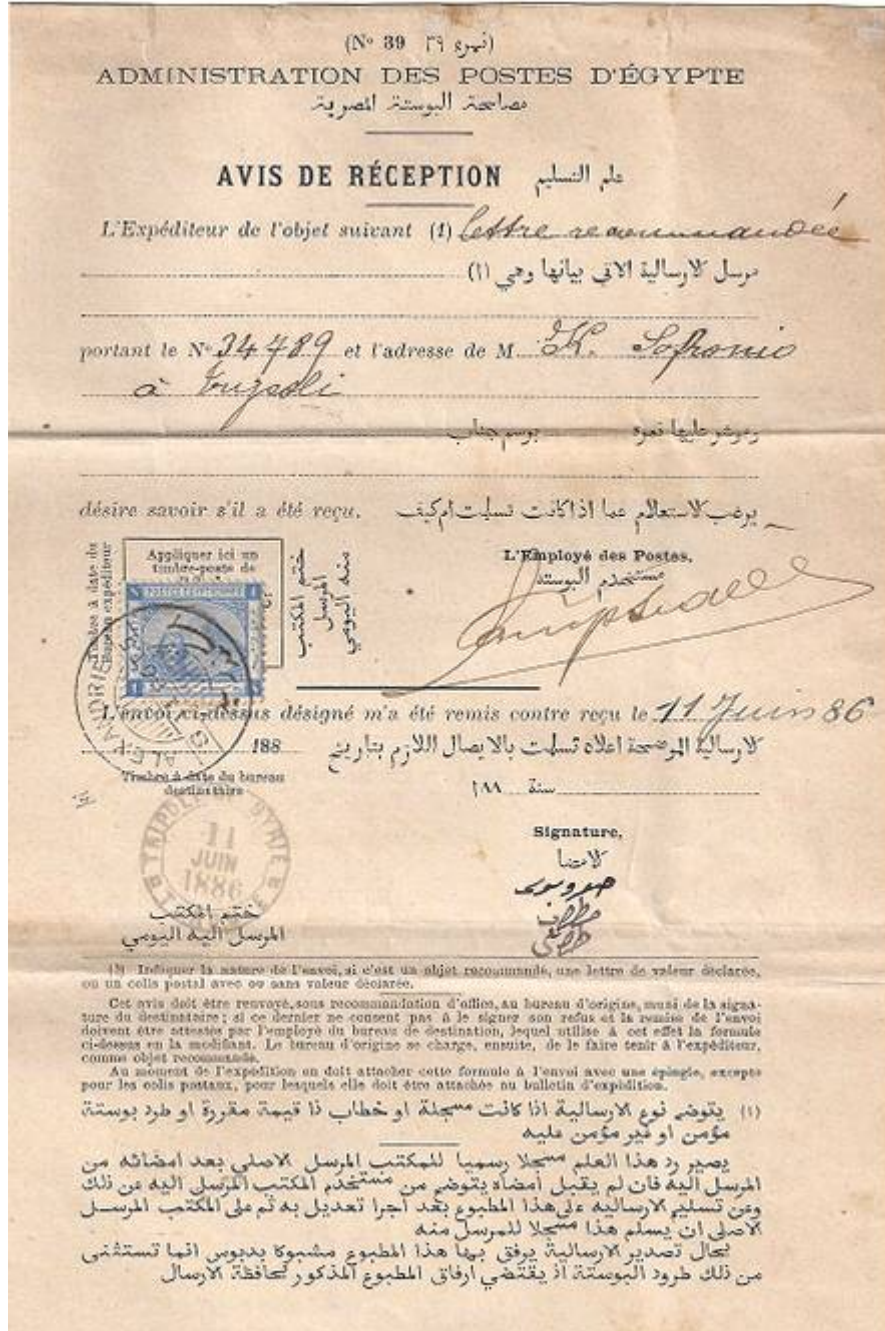 (Nº 39 نمرة ٣٩)
ADMINISTRATION DES POSTES D'ÉGYPTE
مصلحة البوستة المصرية
AVIS DE RÉCEPTION علم التسليم
L'Expéditeur de l'objet suivant (1) lettre recommandée
مرسل الارسالية الاتي بيانها وهي (١)
portant le Nº 34789 et l'adresse de M. K. Sofronio
à
ومؤشر عليها نمرة بوسم جناب
désire savoir s'il a été reçu. يرغب الاستعلام عما اذا كانت تسلمت ام كيف
Timbre à date du
Bureau expéditeur
Appliquer ici un
timbre-poste de
POSTES EGYPTIENNES
ختم المكتب
المرسل
منه اليومي
L'Employé des Postes,
مستخدم البوستة
ALEXANDRIE
L'envoi ci-dessus désigné m'a été remis contre reçu le 11 Juin 86
188 الارسالية الموضحة اعلاه تسلمت بالايصال اللازم بتاريخ
Timbre à date du bureau
destinataire
سنة ١٨٨
TRIPOLI SYRIE
11
JUIN
1886
Signature,
الامضا
ختم المكتب
المرسل اليه اليومي
(1) Indiquer la nature de l'envoi, si c'est un objet recommandé, une lettre de valeur déclarée,
ou un colis postal avec ou sans valeur déclarée.
Cet avis doit être renvoyé, sous recommandation d'office, au bureau d'origine, muni de la signa-
ture du destinataire; si ce dernier ne consent pas à le signer son refus et la remise de l'envoi
doivent être attestés par l'employé du bureau de destination, lequel utilise à cet effet la formule
ci-dessus en la modifiant. Le bureau d'origine se charge, ensuite, de le faire tenir à l'expéditeur,
comme objet recommandé.
Au moment de l'expédition on doit attacher cette formule à l'envoi avec une épingle, excepté
pour les colis postaux, pour lesquels elle doit être attachée au bulletin d'expédition.
(١) يتوضح نوع الارسالية اذا كانت مسجلة او خطاب ذا قيمة مقررة او طرد بوستة
مؤمن او غير مؤمن عليه
يصير رد هذا العلم مسجلا رسميا للمكتب المرسل الاصلي بعد امضائه من
المرسل اليه فان لم يقبل امضاه يتوضح من مستخدم المكتب المرسل اليه عن ذلك
وعن تسليم الارساليه على هذا المطبوع بعد اجرا تعديل به ثم على المكتب المرسل
الاصلى ان يسلم هذا مسجلا للمرسل منه
بحال تصدير الارسالية يرفق بها هذا المطبوع مشبوكا بدبوس انما تستثنى
من ذلك طرود البوستة اذ يقتضي ارفاق المطبوع المذكور بحافظة الارسال